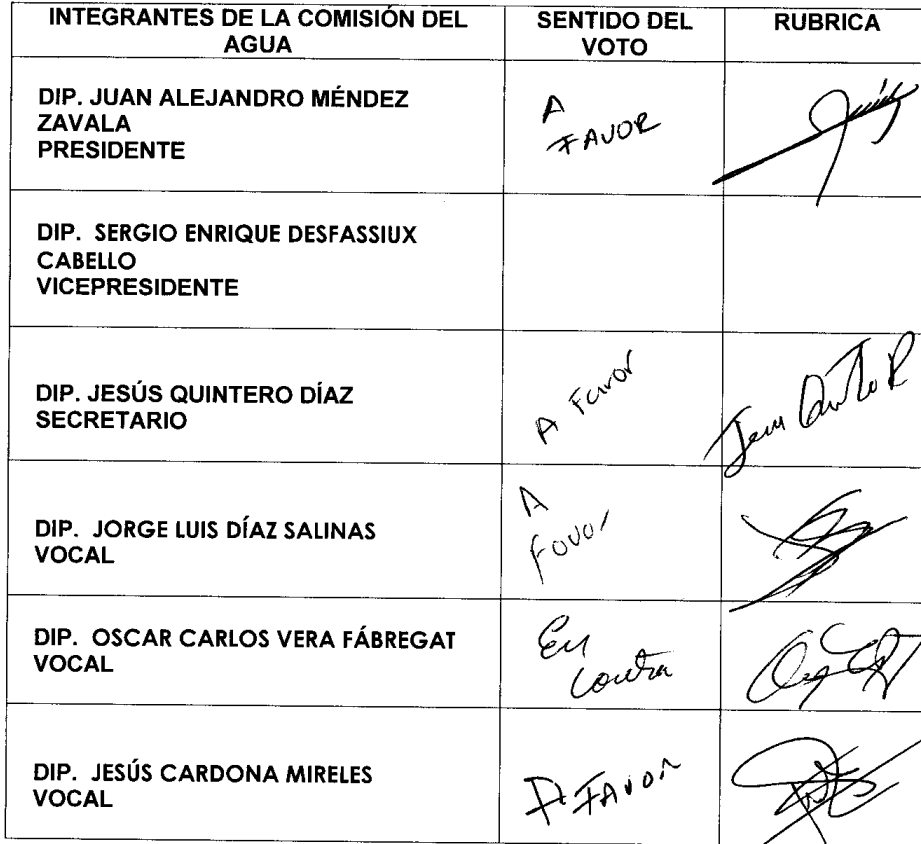 INTEGRANTES DE LA COMISIÓN DEL
AGUA
SENTIDO DEL
VOTO
RUBRICA
DIP. JUAN ALEJANDRO MÉNDEZ
ZAVALA
PRESIDENTE
A
FAVOR
DIP. SERGIO ENRIQUE DESFASSIUX
CABELLO
VICEPRESIDENTE
DIP. JESÚS QUINTERO DÍAZ
SECRETARIO
A Favor
DIP. JORGE LUIS DÍAZ SALINAS
VOCAL
A
Favor
DIP. OSCAR CARLOS VERA FÁBREGAT
VOCAL
En
Contra
DIP. JESÚS CARDONA MIRELES
VOCAL
A FAVOR